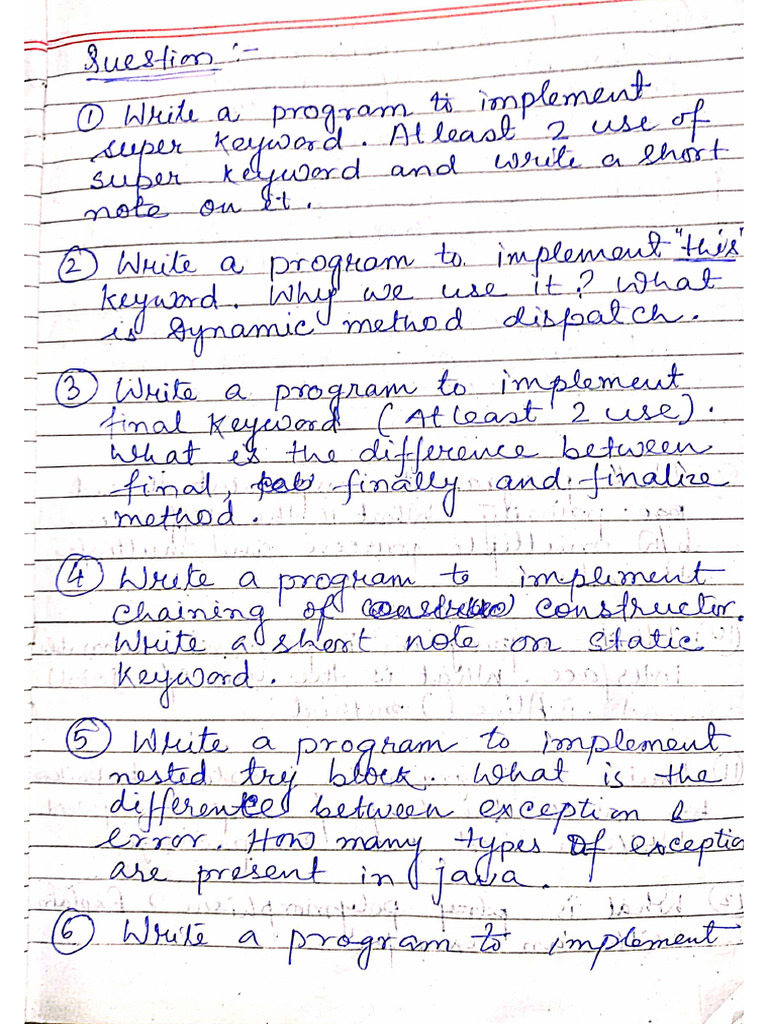 Question :-
① Write a program to implement
super keyword. Atleast 2 use of
super keyword and write a short
note on it.
② Write a program to implement "this"
keyword. Why we use it? What
is Dynamic method dispatch.
③ Write a program to implement
final keyword (Atleast 2 use).
What is the difference between
final, finally and finalize
method.
④ Write a program to implement
chaining of constructor.
Write a short note on static
keyword.
⑤ Write a program to implement
nested try block. What is the
difference between exception &
error. How many types of exceptio
are present in java.
⑥ Write a program to implement